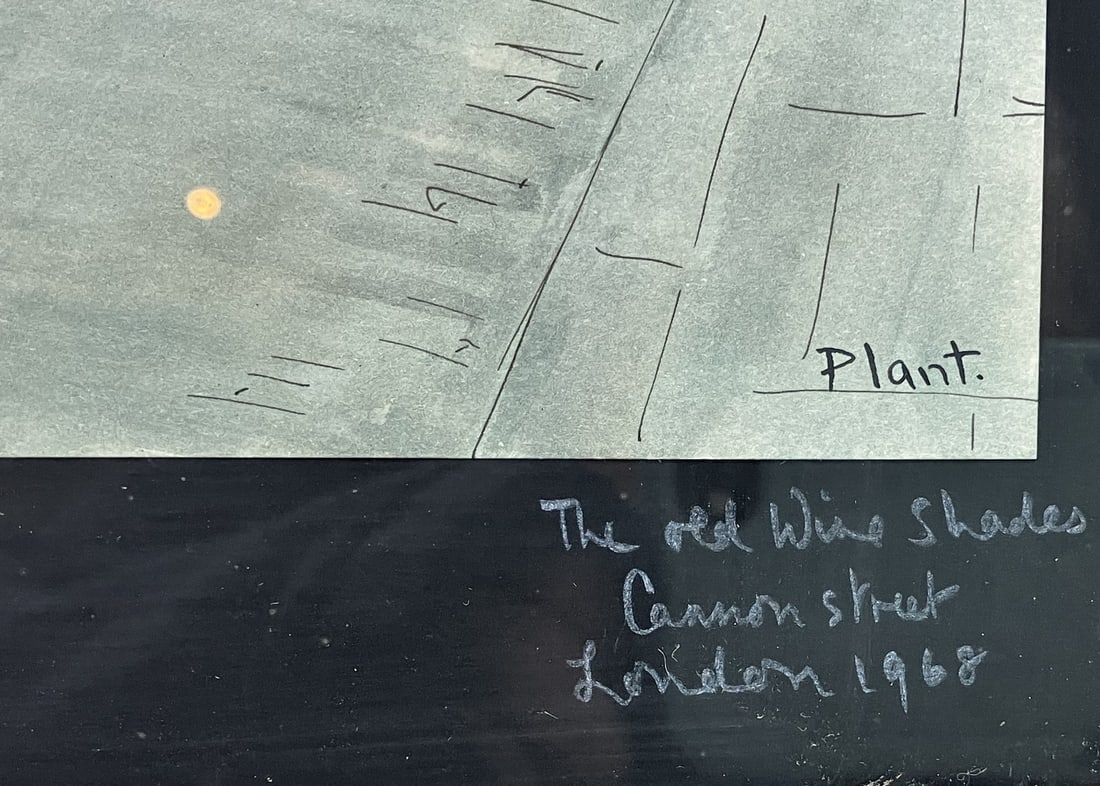 Plant.
The old Wine Shades
Cannon street
London 1968